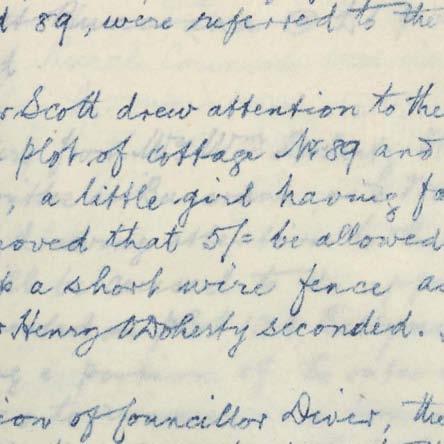 89, were referred to the
Scott drew attention to the
plot of cottage No 89 and
, a little girl having fa
moved that 5/= be allowed
a short wire fence as
Henry O'Doherty seconded.
ion of Councillor Diver, the